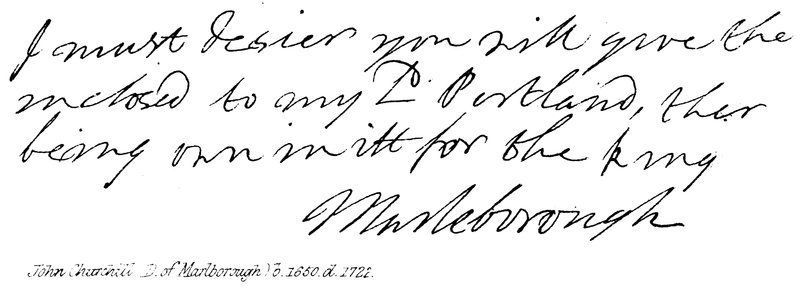 I must desier you will give the
inclosed to my Ld. Portland, ther
being own in itt for the king
Marleborough
John Churchill (D. of Marlborough) b. 1650. d. 1722.